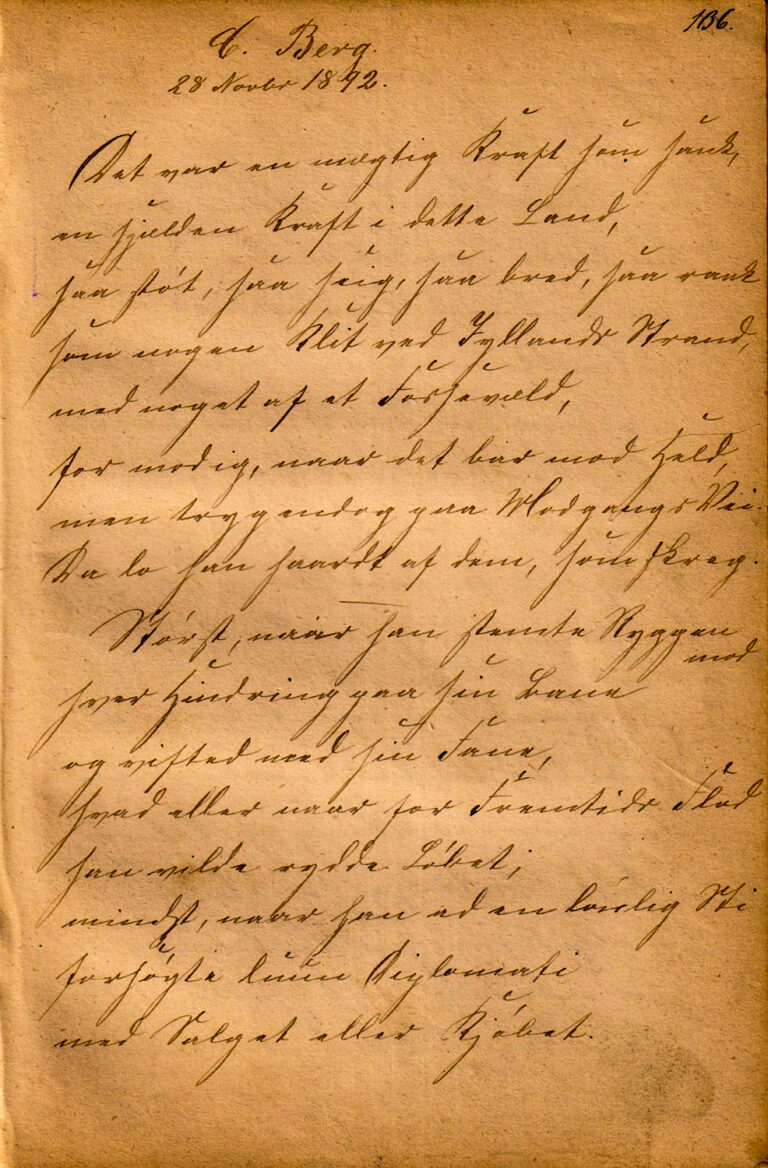 136.
C. Berg.
28 Novbr 1892.
Det var en mægtig Kraft som sank,
en sjælden Kraft i dette Land,
saa støt, saa seig, saa bred, saa rank
som nogen Klit ved Jyllands Strand,
med noget af et Fossevæld,
for modig, naar det bar mod Held,
men tryg endog paa Modgangs Vei.
Da lo han haardt af dem, som skreg.
Størst, naar han stemte Ryggen
mod
hver Hindring paa sin Bane
og vifted med sin Fane,
hvad eller naar for Fremtids Flod
han vilde rydde Løbet;
mindst, naar han ad en lønlig Sti
forsøgte luun Diplomati
med Salget eller Kjøbet.